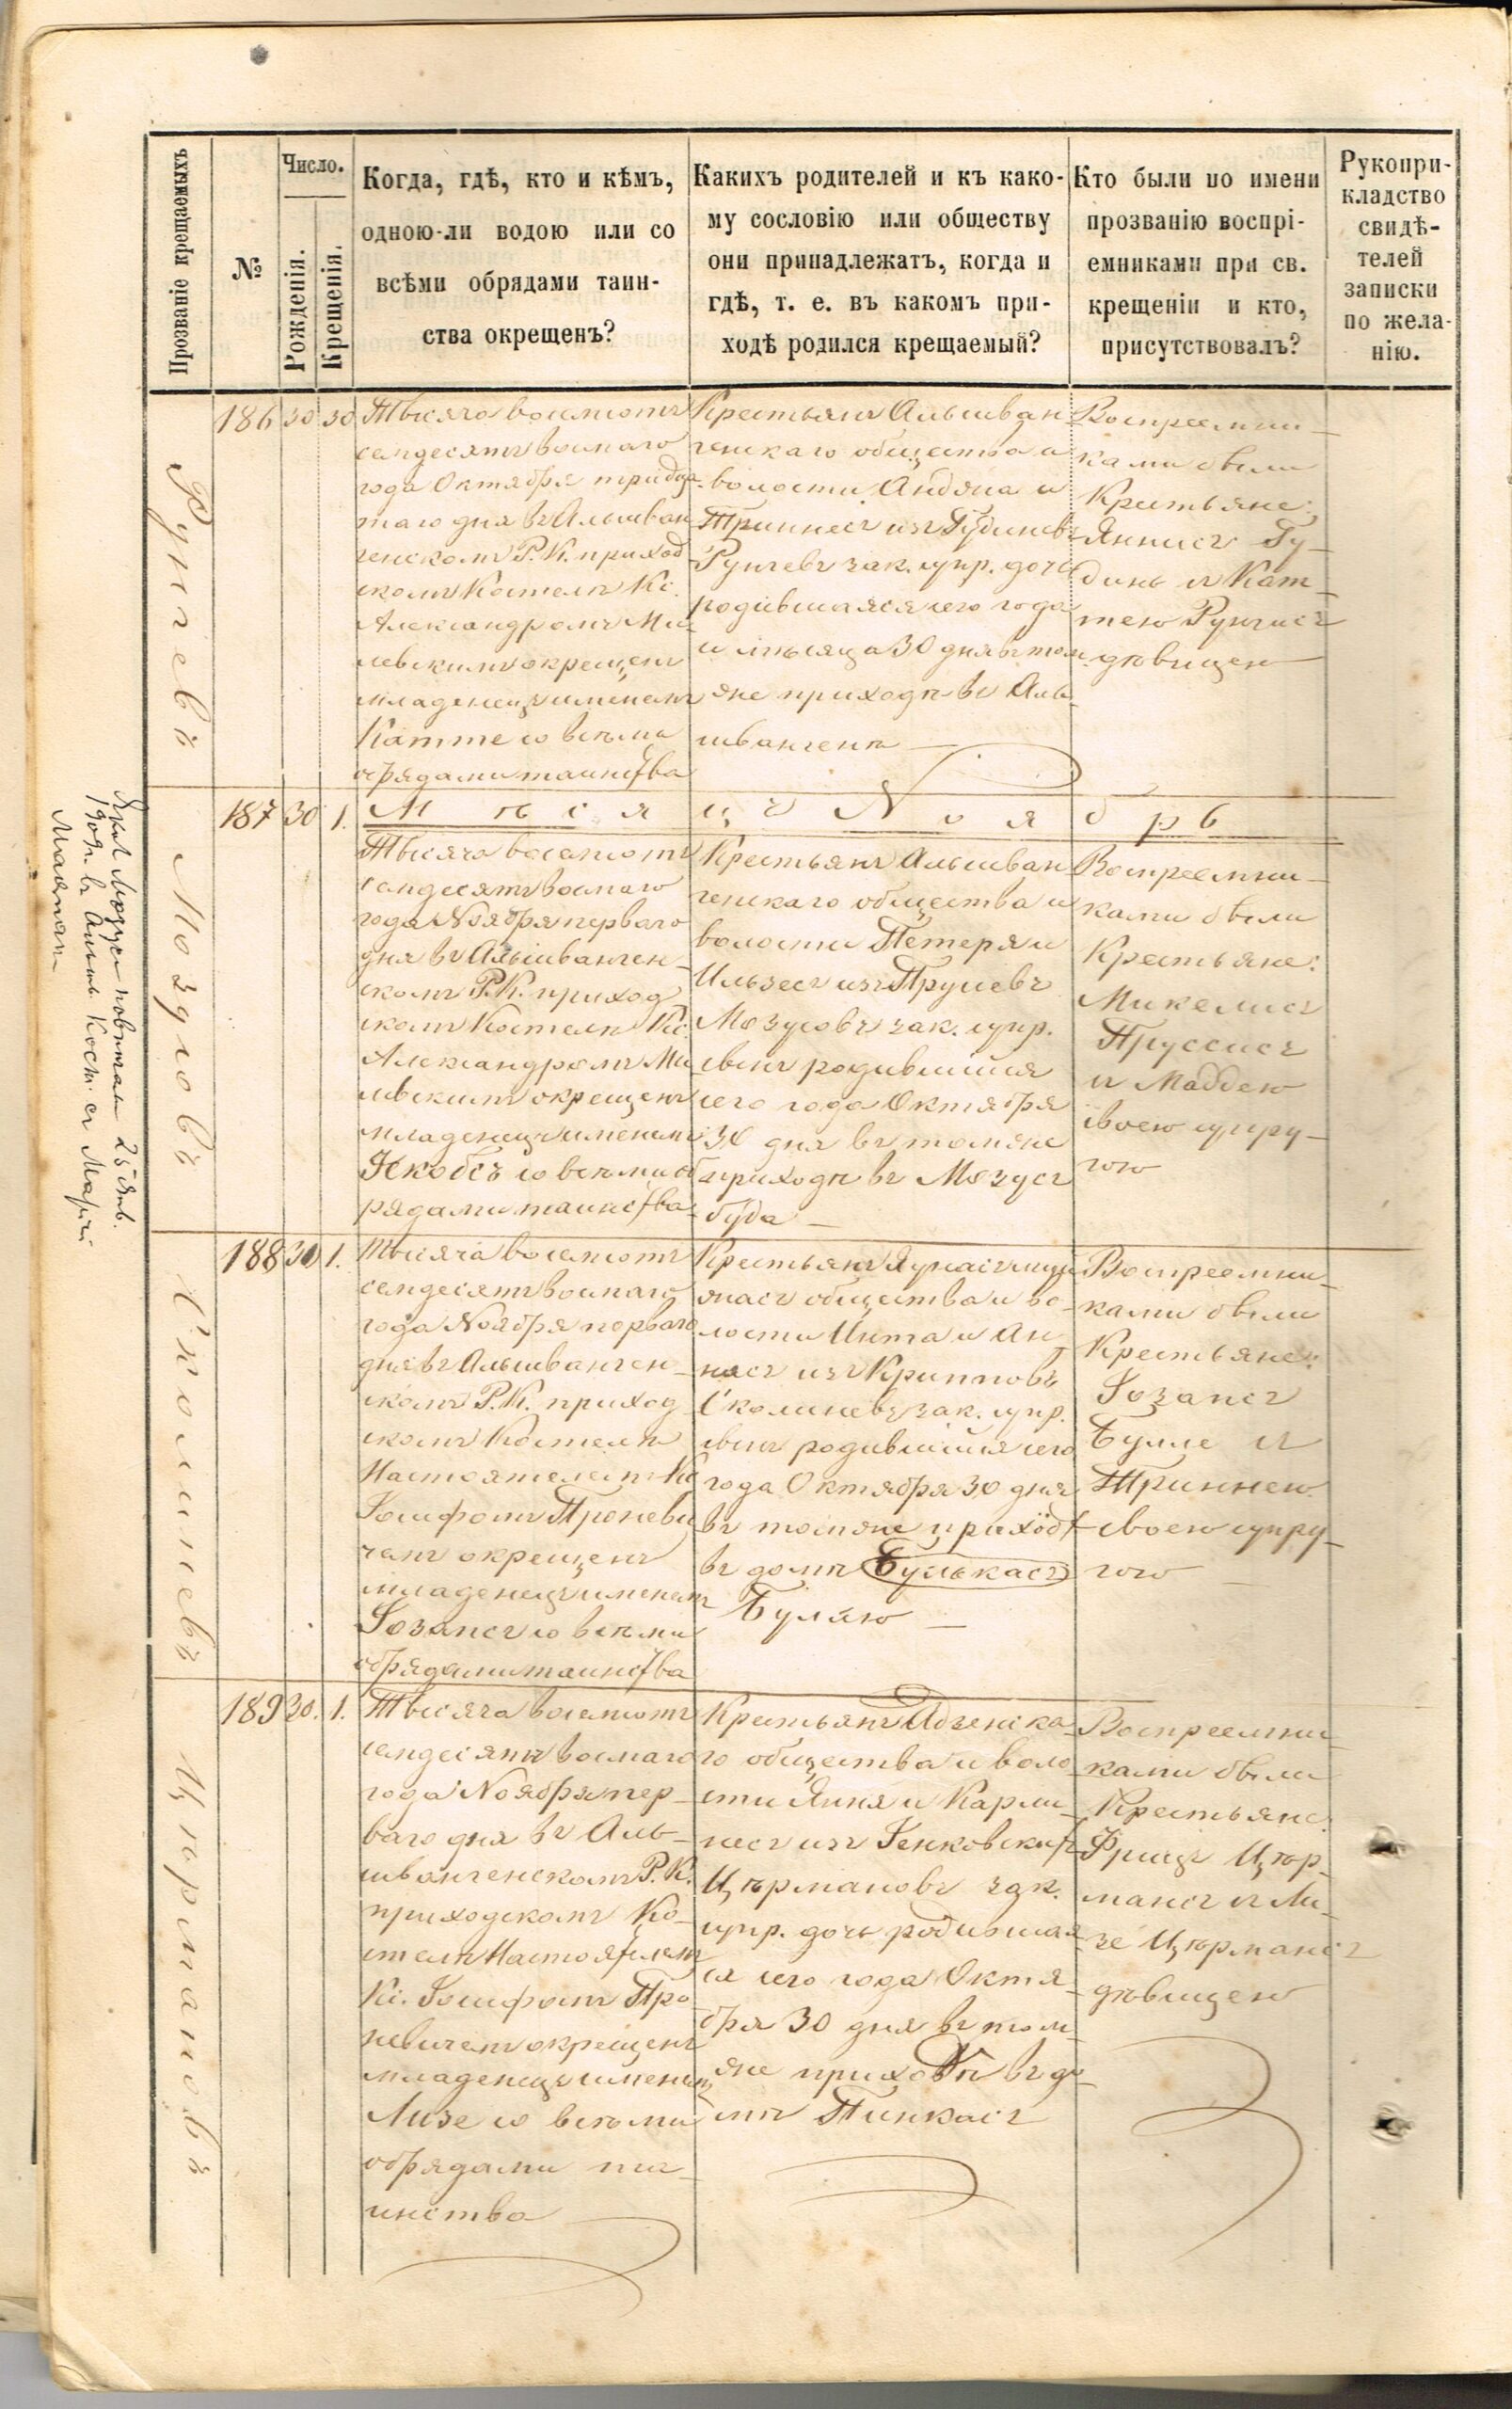 Прозваніе крещаемыхъ
№
Число.
Рожденія.
Крещенія.
Когда, гдѣ, кто и кѣмъ,
одною-ли водою или со
всѣми обрядами таин-
ства окрещенъ?
Какихъ родителей и къ како-
му сословію или обществу
они принадлежатъ, когда и
гдѣ, т. е. въ какомъ при-
ходѣ родился крещаемый?
Кто были по имени
прозванію воспрі-
емниками при св.
крещеніи и кто,
присутствовалъ?
Рукопри-
кладство
свидѣ-
телей
записки
по жела-
нію.
Рунгевъ
186 30 30
Тысяча восемьсотъ
семдесятъ восмаго
года Октября тридца-
таго дня въ Альшван
генскомъ Р. К. приход
скомъ Костелѣ Кс.
Александромъ Ми-
левскимъ окрещенъ
младенецъ именемъ
Катте со всѣми
обрядами таинства
Крестьянъ Альшван
генскаго общества и
волости Андяна и
Триннесъ изъ Гудиневъ
Рунгевъ зак. супр. дочь
родившаяся сего года
и мѣсяца 30 дня въ том-
же приходѣ въ Аль-
швангенѣ
Воспреемни-
ками были
Крестьяне:
Яннисъ Гу-
динь и Кат-
тею Рунгисъ
дѣвицею
Мѣсяцъ Ноябрь
Мозусовъ
187 30 1.
Тысяча восемьсотъ
семдесятъ восмаго
года Ноября перваго
дня въ Альшванген-
скомъ Р. К. приход
скомъ Костелѣ Кс.
Александромъ Ми
левскимъ окрещенъ
младенецъ именемъ
Якобсъ со всѣми об
рядами таинства
Крестьянъ Альшван
генскаго общества и
волости Петеря и
Ильзесъ изъ Прусевъ
Мозусовъ зак. супр.
сынъ родившійся
сего года Октября
30 дня въ томже
приходѣ въ Мозусъ
буда
Воспреемни-
ками были
Крестьяне:
Микелисъ
Пруссисъ
и Маддею
своею супру-
гою
25 Янв.
190
Костел. съ Маріей
Скопмневъ
188 30 1.
Тысяча восемьсотъ
семдесятъ восмаго
года Ноября перваго
дня въ Альшванген-
скомъ Р. К. приход
скомъ Костелѣ
Настоятелемъ Кс
Іосифомъ Проневи
чемъ окрещенъ
младенецъ именемъ
Іозапсъ со всѣми
обрядами таинства
общества и во-
лости Инта и Ан-
насъ изъ Крипповъ
зак. супр.
сынъ родившійся сего
года Октября 30 дня
въ томже приходѣ
въ домѣ Булькасъ
Буляю
Воспреемни-
ками были
Крестьяне:
Іозапсъ
Булле и
Триннею
своею супру-
гою
Цѣрмановъ
189 30. 1.
Тысяча восемьсотъ
семдесятъ восмаго
года Ноября пер-
ваго дня въ Аль-
швангенскомъ Р. К.
приходскомъ Ко-
стелѣ Настоятелемъ
Кс. Іосифомъ Про
невичемъ окрещенъ
младенецъ именемъ
Лизе со всѣми
обрядами та-
инства
Крестьянъ Адзенска-
го общества и воло
сти Яння и Карли-
несъ изъ Генковскихъ
Цѣрмановъ зак.
супр. дочь родившая
ся сего года Октя-
бря 30 дня въ том-
же приходѣ въ до-
мѣ Пинкасъ
Воспреемни-
ками были
Крестьяне:
Фрицъ Цѣр-
мансъ и Ли-
зе Цѣрмансъ
дѣвицею